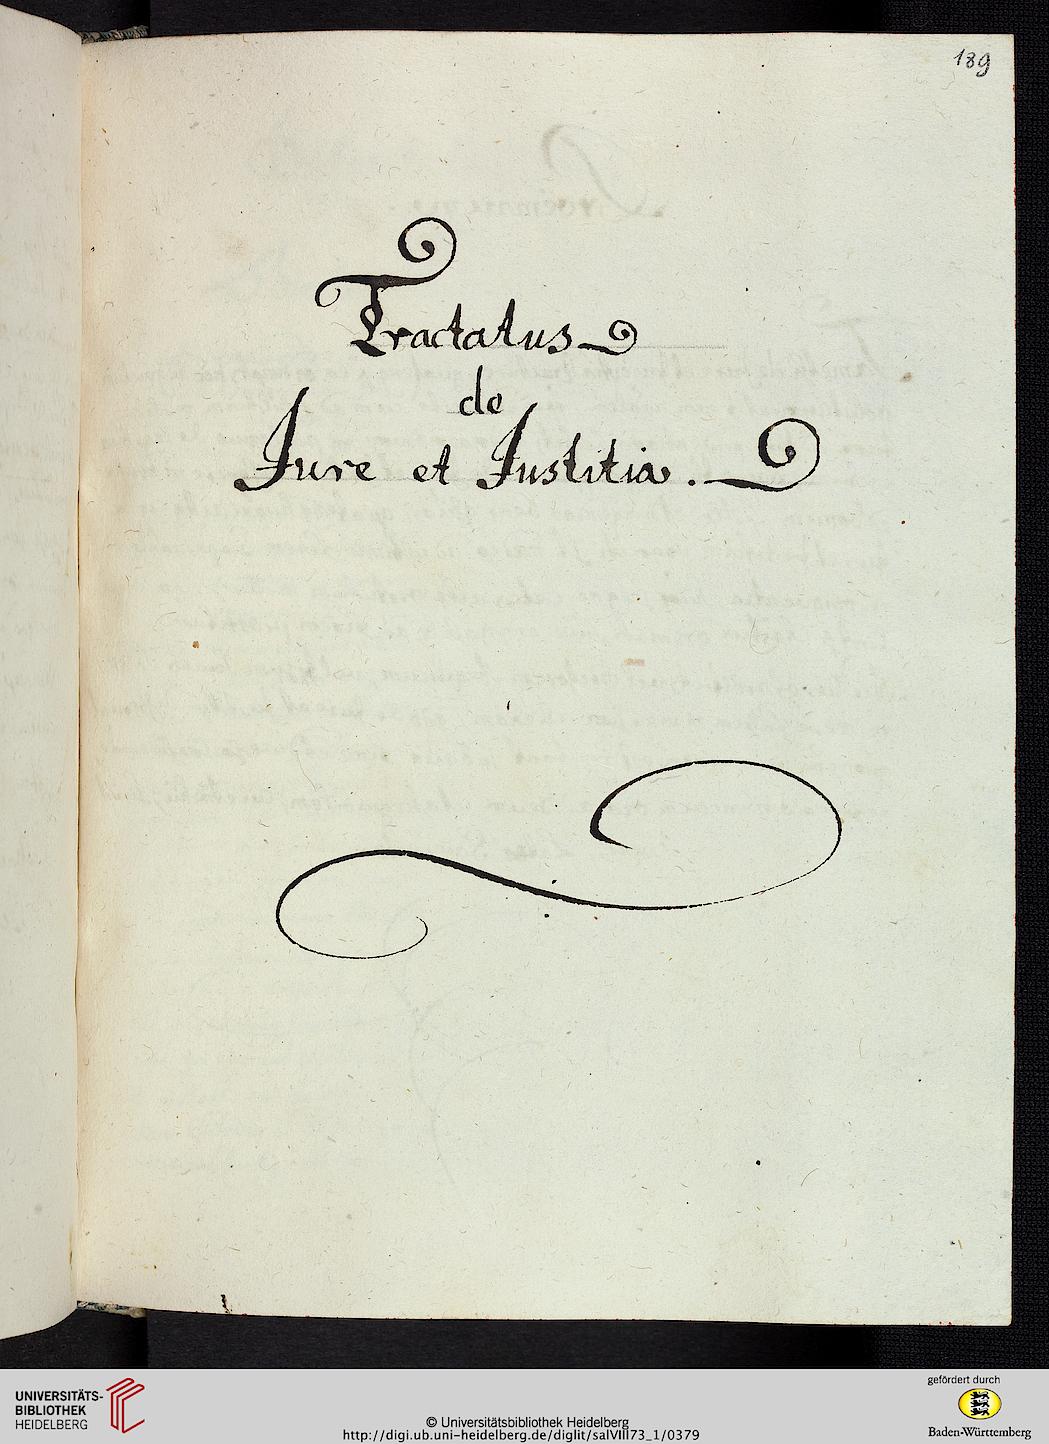 189
Tractatus
de
Jure et Justitia.
UNIVERSITÄTS-
BIBLIOTHEK
HEIDELBERG
© Universitätsbibliothek Heidelberg
http://digi.ub.uni-heidelberg.de/diglit/salVIII73_1/0379
gefördert durch
Baden-Württemberg